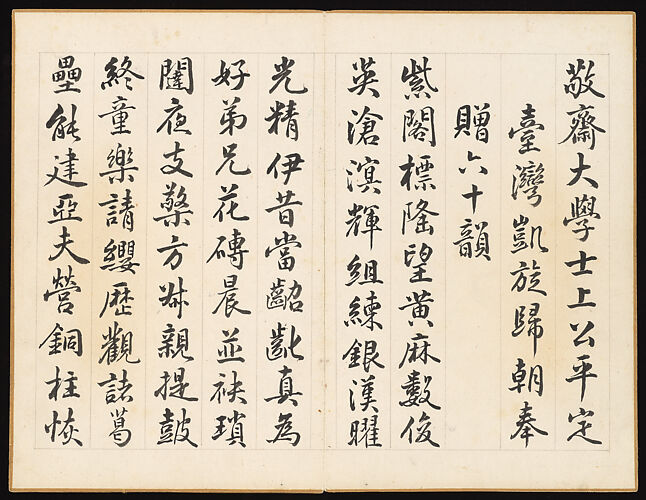 敬齋大學士上公平定
臺灣凱旋歸朝奉
贈六十韻
紫閣標隆望黃麻數俊
英滄溟輝組練銀漢曜
光精伊昔當齠齔真為
好弟兄花磚晨並袂瑣
闥夜支檠方城親提鼓
終童樂請纓歷觀諸葛
壘能建亞夫營銅柱恢